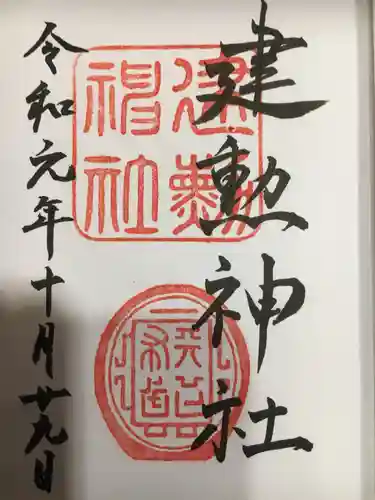 建勲神社
建勲
神社
令和元年十月廿九日